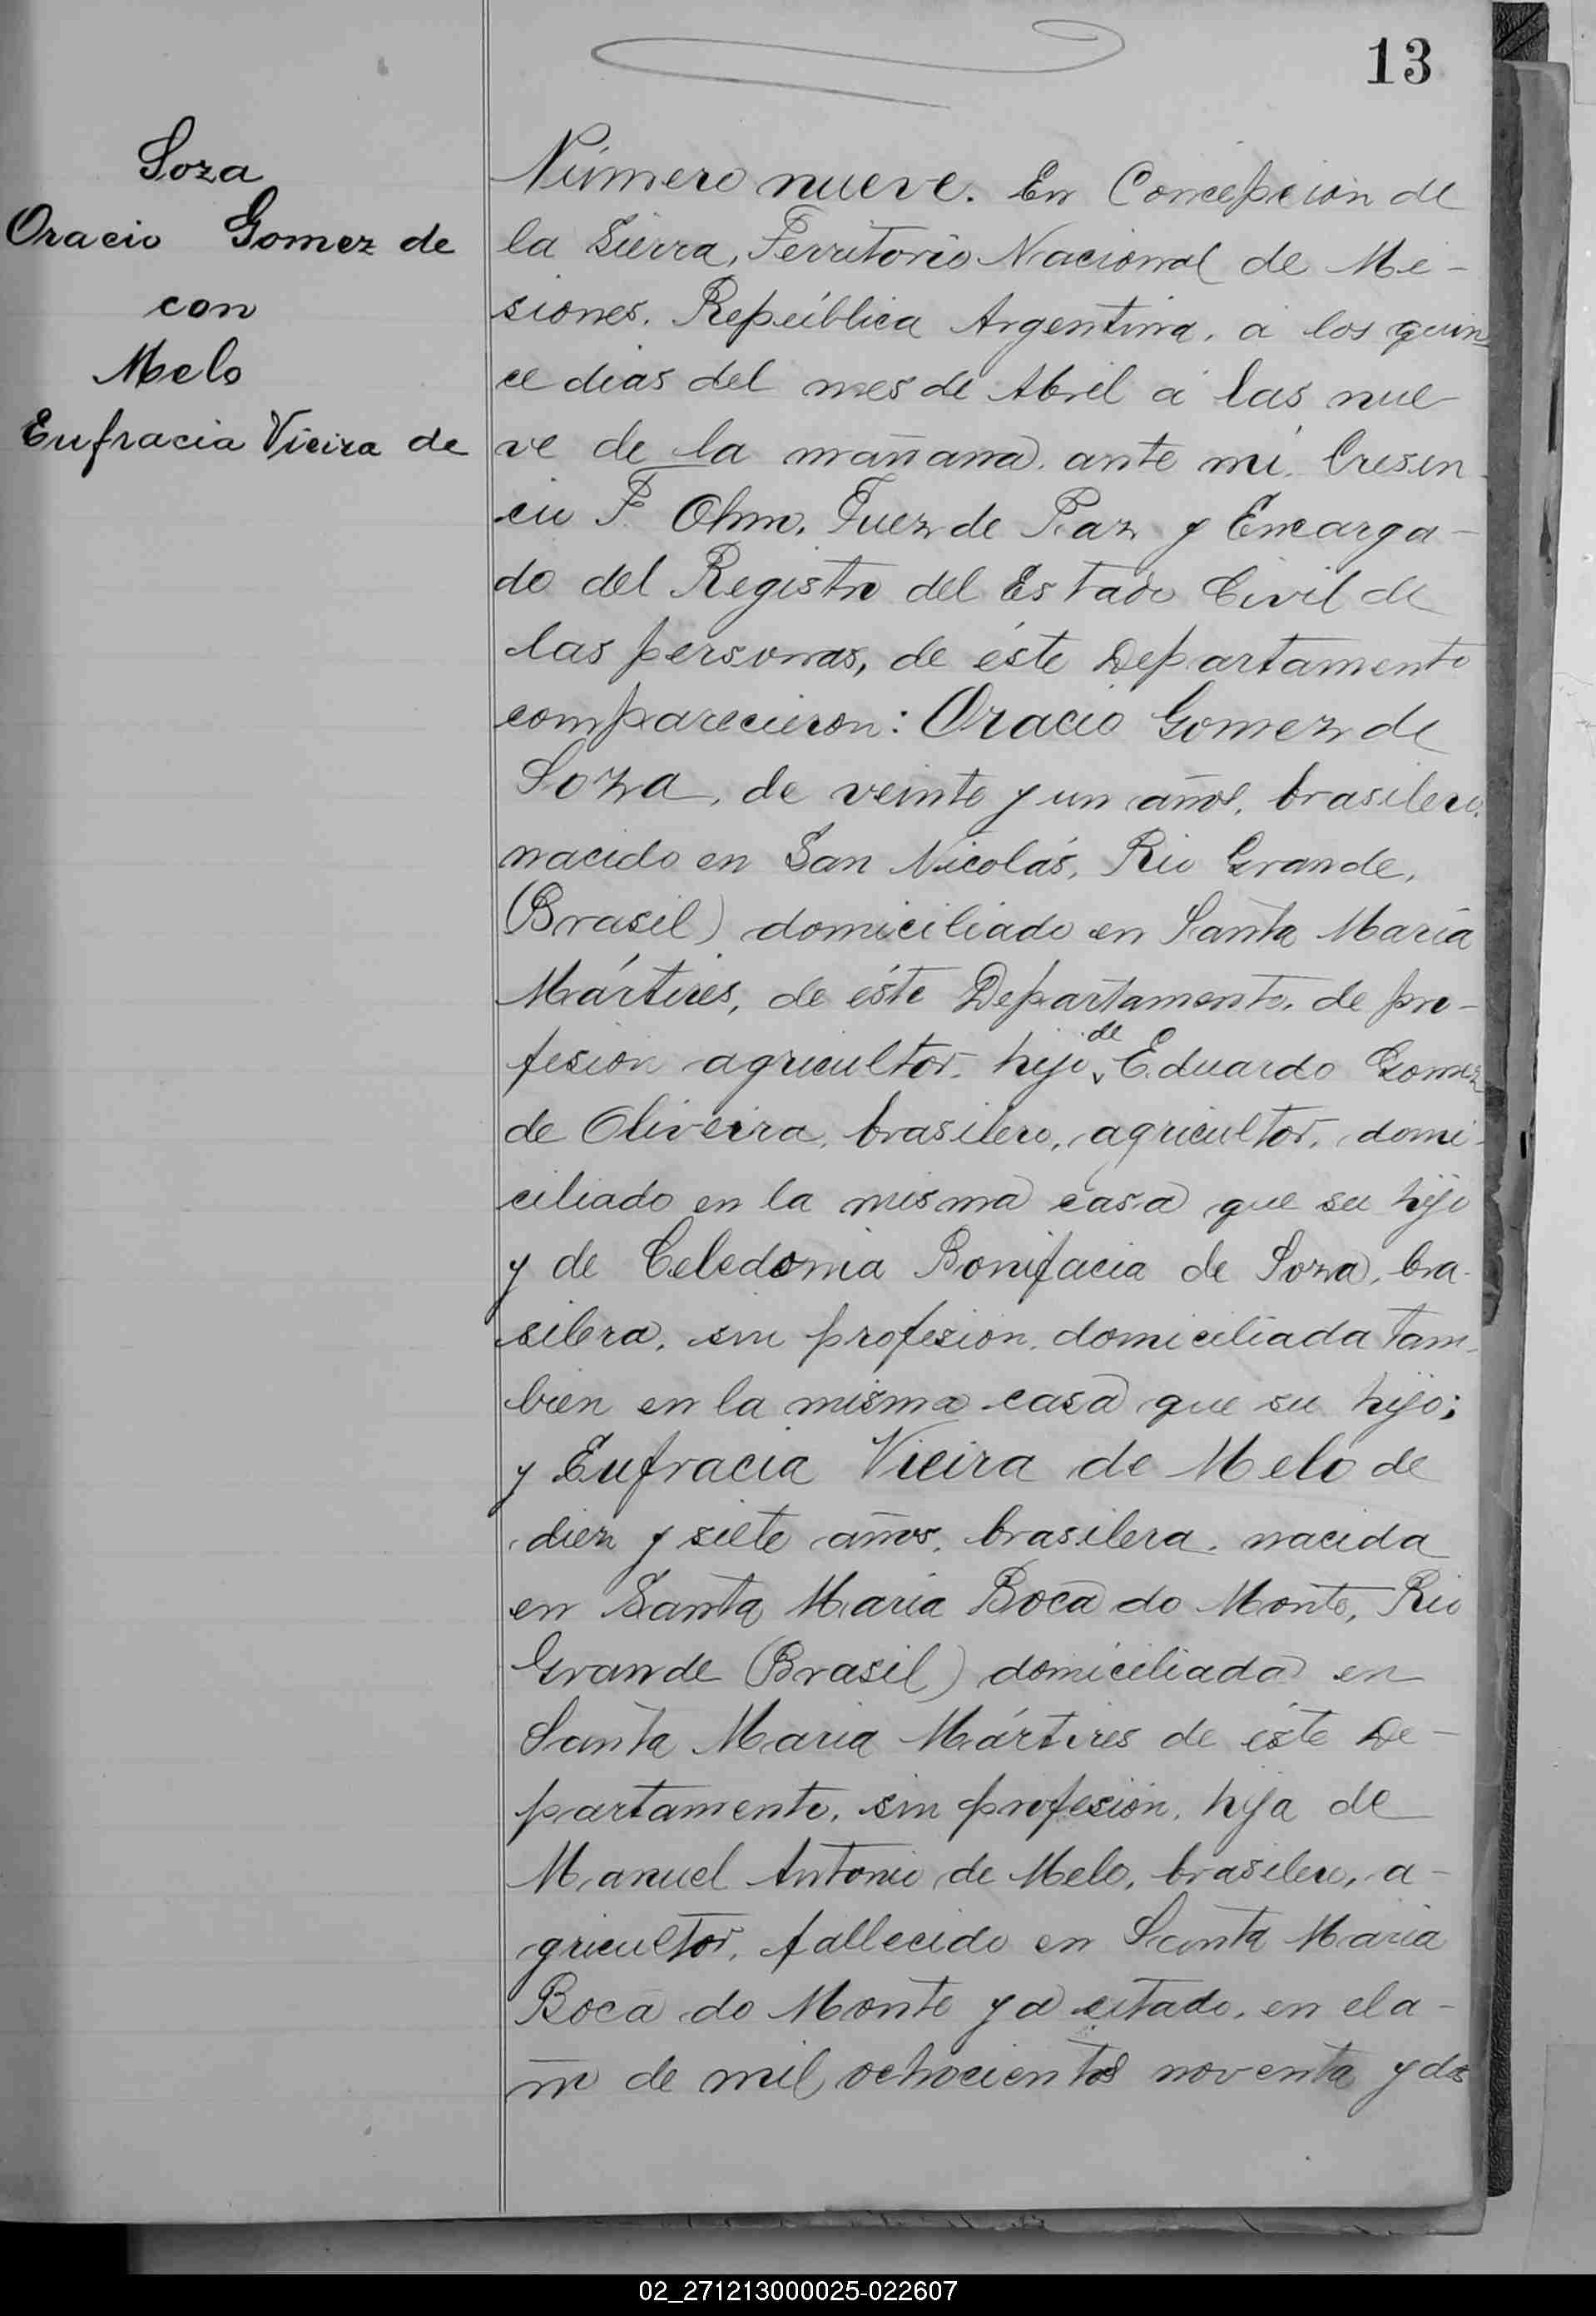 13
Soza
Oracio Gomez de
con
Melo
Eufracia Vieira de
Número nueve. En Concepcion de
la Sierra, Territorio Nacional de Mi-
siones, República Argentina, á los quin-
ce dias del mes de Abril á las nue-
ve de la mañana, ante mi, Cresen-
cio P. Olmo, Juez de Paz y Encarga-
do del Registro del Estado Civil de
las personas, de éste Departamento
comparecieron: Oracio Gomez de
Soza, de veinte y un años, brasilero,
nacido en San Nicolás, Rio Grande,
(Brasil) domiciliado en Santa Maria
Mártires, de éste Departamento, de pro-
fesion agricultor, hijo de Eduardo Gomez
de Oliveira, brasilero, agricultor, domi-
ciliado en la misma casa que su hijo
y de Celedonia Bonifacia de Soza, bra-
silera, sin profesion, domiciliada tam-
bien en la misma casa que su hijo;
y Eufracia Vieira de Melo de
diez y siete años, brasilera, nacida
en Santa Maria Boca do Monte, Rio
Grande (Brasil) domiciliada en
Santa Maria Mártires de éste De-
partamento, sin profesión, hija de
Manuel Antonio de Melo, brasilero, a-
gricultor, fallecido en Santa Maria
Boca do Monte ya citado, en el a-
ño de mil ochocientos noventa y dos
02_271213000025-022607